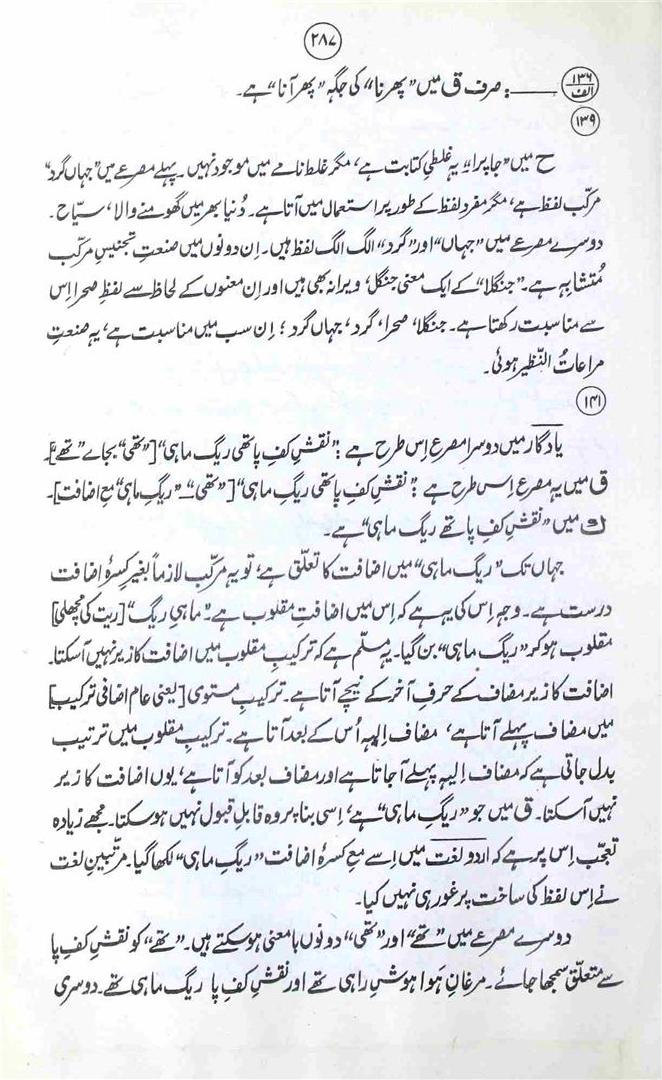 ۲۸۷
۱۳۶ الف ____ : صرف ق میں ”پھرنا“ کی جگہ ”پھر آنا“ ہے۔
۱۳۹
ح میں ”جاپرا“ یہ غلطیِ کتابت ہے، مگر غلط نامے میں موجود نہیں۔ پہلے مصرعے میں ”جہاں گرد“
مرکّب لفظ ہے، مگر مفرد لفظ کے طور پر استعمال میں آتا ہے۔ دُنیا بھر میں گھومنے والا، سیّاح۔
دوسرے مصرعے میں ”جہاں“ اور ”گرد“ الگ الگ لفظ ہیں۔ اِن دونوں میں صنعتِ تجنیسِ مرکّب
مُتشابِہ ہے۔ ”جنگلا“ کے ایک معنی جنگل، ویرانہ بھی ہیں اور اِن معنوں کے لحاظ سے لفظِ صحرا اِس
سے مناسبت رکھتا ہے۔ جنگلا، صحرا، گرد، جہاں گرد؛ اِن سب میں مناسبت ہے، یہ صنعتِ
مراعاتُ النّظیر ہوئی۔
۱۴۱
یادگار میں دوسرا مصرع اِس طرح ہے : ”نقشِ کفِ پا تھی ریگ ماہی“ [”تھی“ بجاے ”تھے“]۔
ق میں یہ مصرع اِس طرح ہے : ”نقشِ کفِ پا تھی ریگِ ماہی“ [”تھی“۔ ”ریگِ ماہی“ مع اضافت]۔
ک میں ”نقشِ کفِ پا تھے ریگ ماہی“ ہے۔
جہاں تک ”ریگ ماہی“ میں اضافت کا تعلّق ہے، تو یہ مرکّب لازماً بغیرِ کسرۂ اضافت
درست ہے۔ وجہ اِس کی یہ ہے کہ اِس میں اضافتِ مقلوب ہے۔ ”ماہیِ ریگ“ [ریت کی مچھلی]
مقلوب ہو کر ”ریگ ماہی“ بن گیا۔ یہ مسلّم ہے کہ ترکیبِ مقلوب میں اضافت کا زیر نہیں آسکتا۔
اضافت کا زیر مضاف کے حرفِ آخر کے نیچے آتا ہے۔ ترکیبِ مستوی [یعنی عام اضافی ترکیب]
میں مضاف پہلے آتا ہے، مضاف اِلیہ اُس کے بعد آتا ہے۔ ترکیبِ مقلوب میں ترتیب
بدل جاتی ہے کہ مضاف اِلیہ پہلے آجاتا ہے اور مضاف بعد کو آتا ہے، یوں اضافت کا زیر
نہیں آسکتا۔ ق میں جو ”ریگِ ماہی“ ہے، اِسی بنا پر وہ قابلِ قبول نہیں ہوسکتا۔ مجھے زیادہ
تعجّب اِس پر ہے کہ اردو لغت میں اِسے مع کسرۂ اضافت ”ریگِ ماہی“ لکھا گیا۔ مرتّبینِ لغت
نے اِس لفظ کی ساخت پر غور ہی نہیں کیا۔
دوسرے مصرعے میں ”تھے“ اور ”تھی“ دونوں بامعنی ہوسکتے ہیں۔ ”تھے“ کو نقشِ کفِ پا
سے متعلّق سمجھا جائے۔ مرغانِ ہَوا ہوشِ راہی تھے اور نقشِ کفِ پا ریگ ماہی تھے۔ دوسری